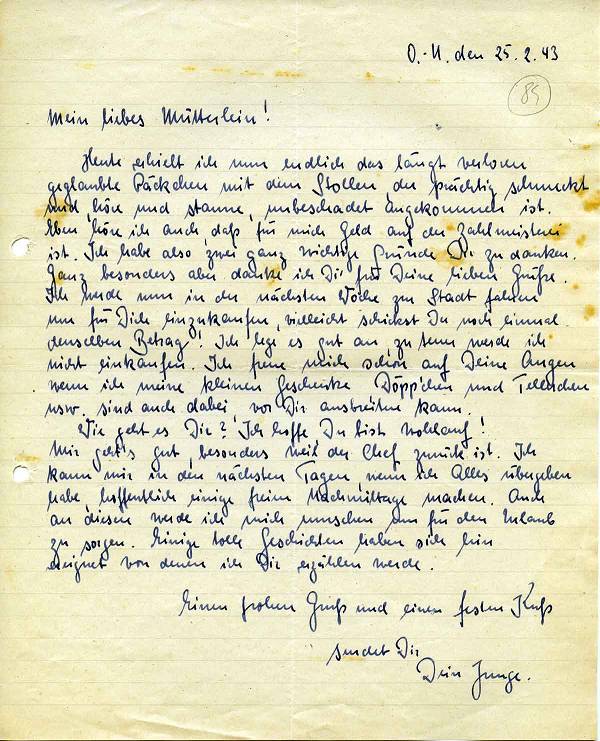 O.-U. den 25.2.43
85
Mein liebes Mütterlein!
Heute erhielt ich nun endlich das längst verloren
geglaubte Päckchen mit dem Stollen der prächtig schmeckt
und, höre und staune, unbeschadet angekommen ist.
Eben höre ich auch, daß für mich Geld auf der Zahlmeisterei
ist. Ich habe also zwei ganz wichtige Gründe Dir zu danken.
Ganz besonders aber danke ich Dir für Deine lieben Grüße.
Ich werde nun in der nächsten Woche zur Stadt fahren
um für Dich einzukaufen, vielleicht schickst Du noch einmal
denselben Betrag! Ich lege es gut an, zu teuer werde ich
nicht einkaufen. Ich freue mich schon auf Deine Augen
wenn ich meine kleinen Geschenke Döppchen und Tellerchen
usw. sind auch dabei, vor Dir ausbreiten kann.
Wie geht es Dir? Ich hoffe, Du bist wohlauf!
Mir geht's gut, besonders weil der Chef zurück ist. Ich
kann mir in den nächsten Tagen, wenn ich Alles übergeben
habe, hoffentlich einige freie Nachmittage machen. Auch
an diesen werde ich mich umsehen um für den Urlaub
zu sorgen. Einige tolle Geschichten haben sich hier
ereignet von denen ich Dir erzählen werde.
Einen frohen Gruß und einen festen Kuß
sendet Dir
Dein Junge.